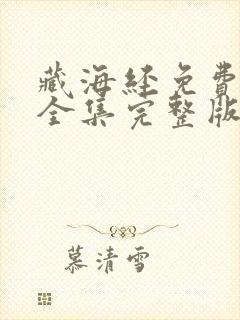 藏海经免費
全集完整版
慕清雪